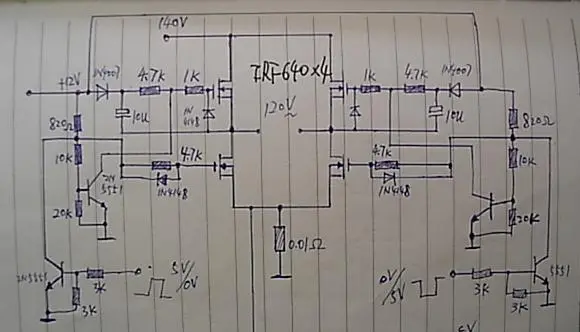 140V
+12V
1N4007
4.7K
1K
IRF640×4
1K
4.7K
1N4007
10U
1N
4148
120V~
10U
820Ω
820Ω
10K
4.7K
4.7K
10K
2N
5551
1N4148
1N4148
20K
20K
0.01Ω
2N5551
3K
5V
0V
0V
5V
3K
5551
3K
3K